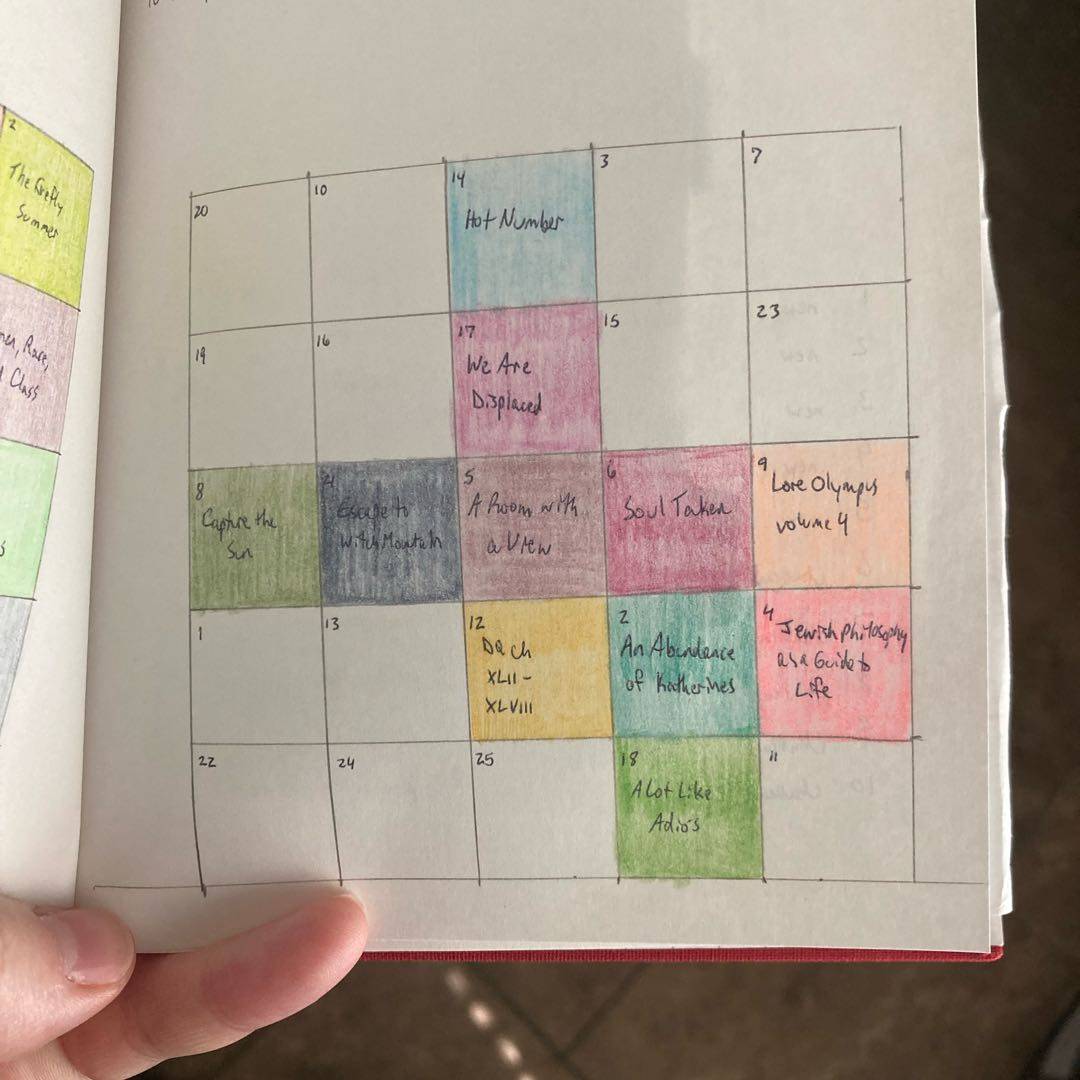 2
The Firefly
Summer
Race,
Class
s
20
10
14
Hot Number
3
7
19
16
17
We Are
Displaced
15
23
8
Capture the
Sun
21
Escape to
Witch Mountain
5
A Room with
a View
6
Soul Taken
9
Lore Olympus
volume 4
1
13
12
DQ ch
XLII -
XLVIII
2
An Abundance
of Katherines
4
Jewish Philosophy
as a Guide to
Life
22
24
25
18
A Lot Like
Adiós
11